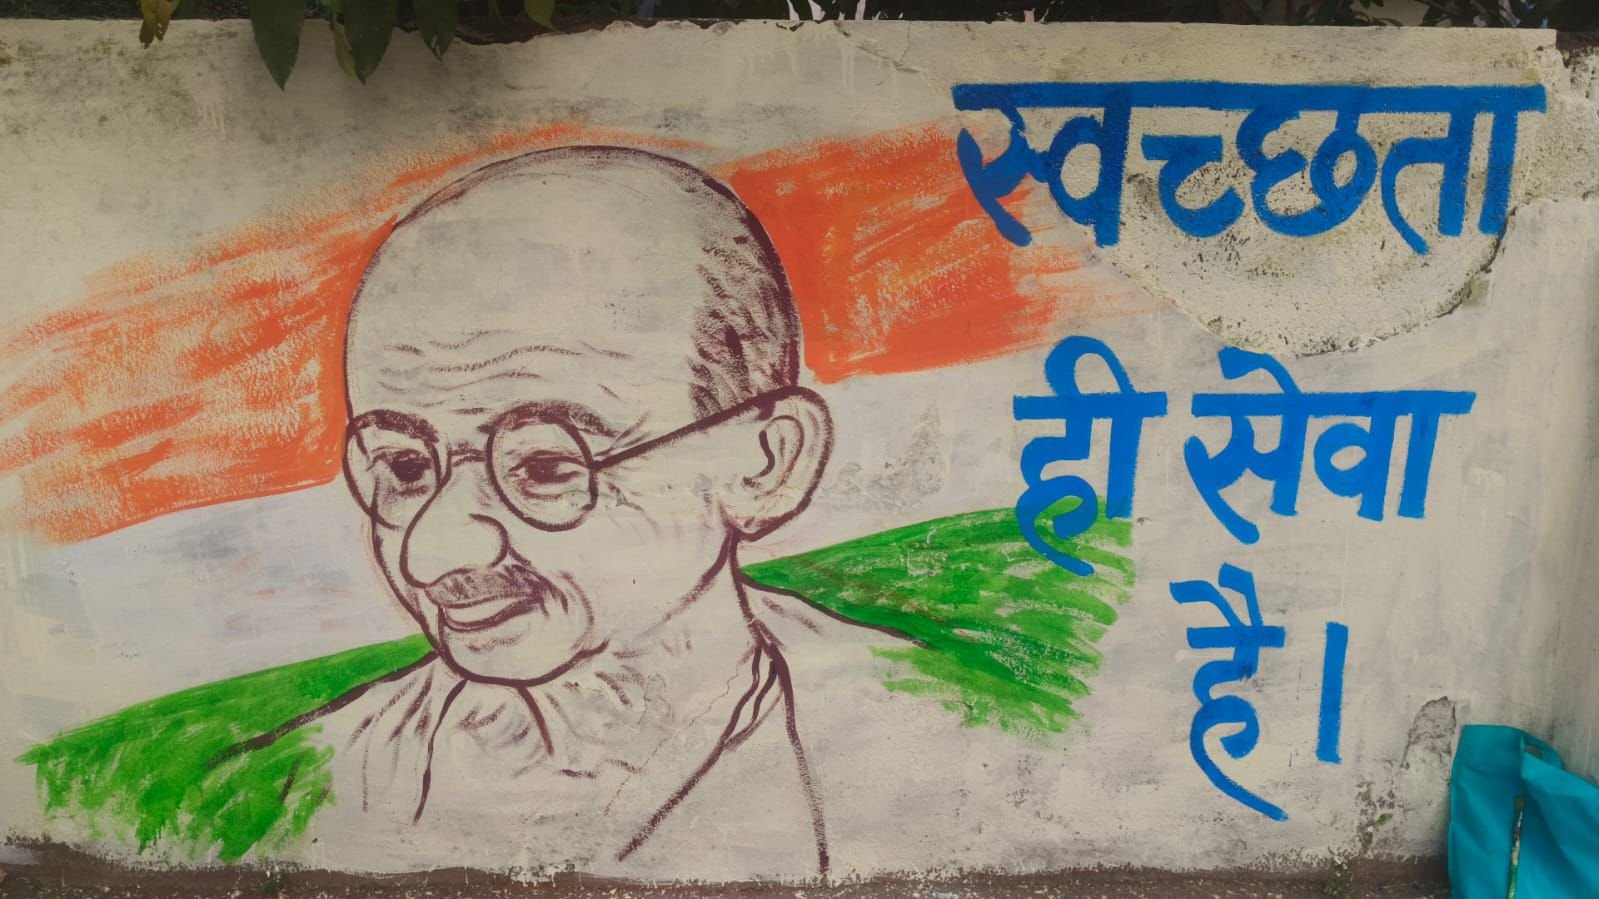 स्वच्छता
ही सेवा
है।